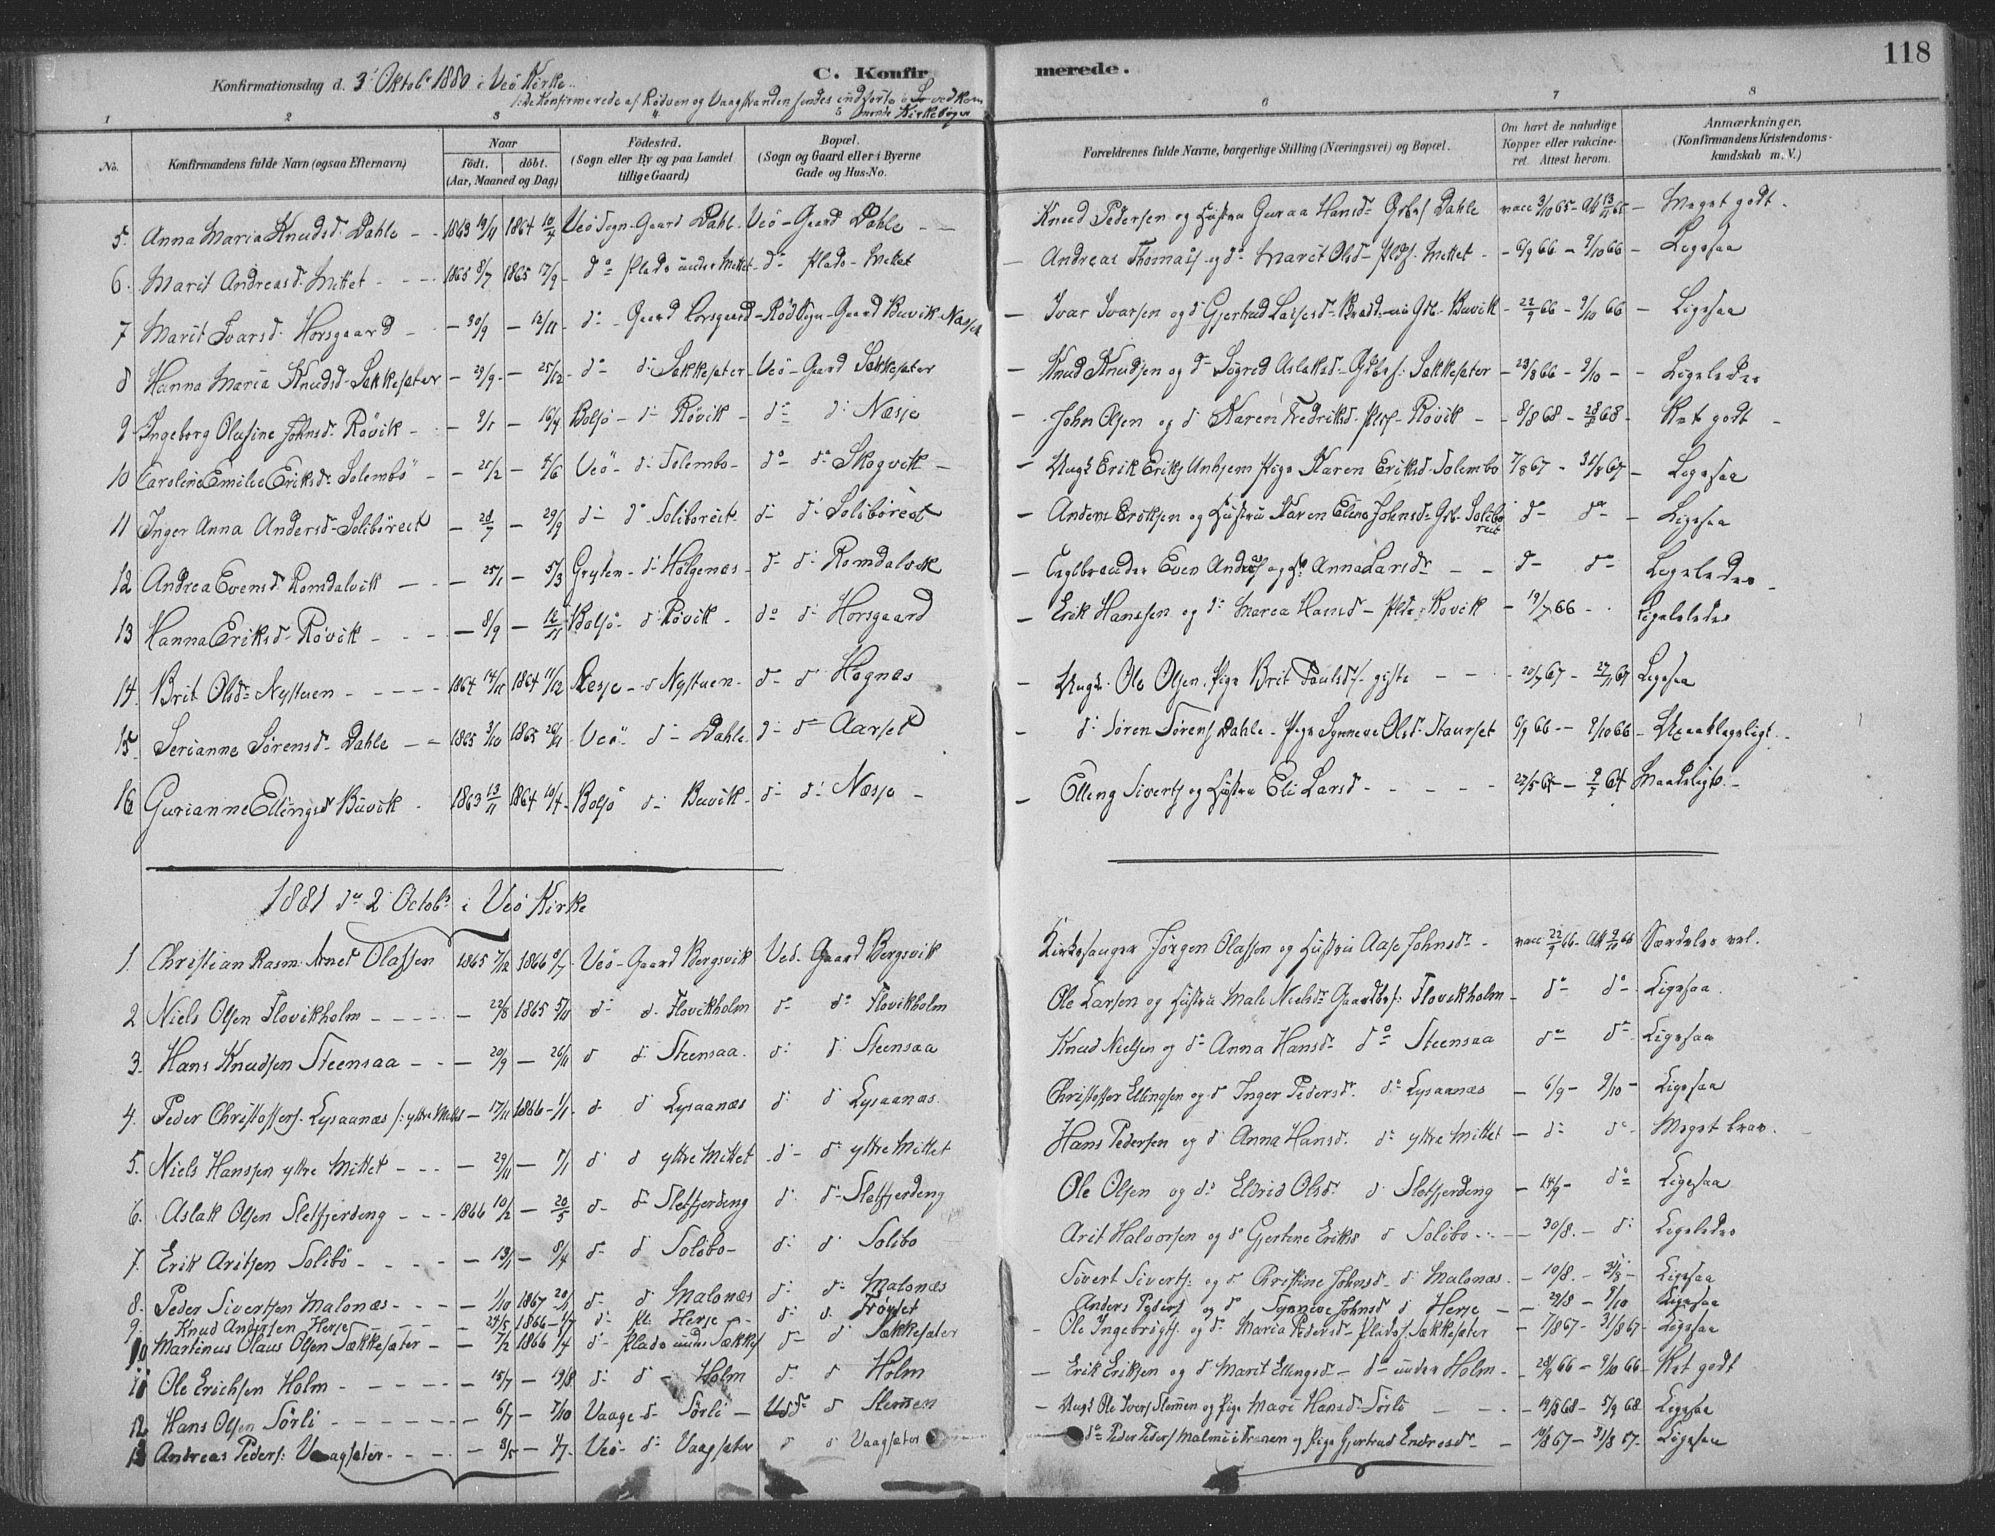 118
Konfirmationsdag d. 3' Oktobr 1880 i Veö Kirke.
C. Konfirmerede.
1 2 3 4 5 6 7 8
No.
Konfirmandens fulde Navn (ogsaa Efternavn)
Naar
födt. döbt.
(Aar, Maaned og Dag)
Födested.
(Sogn eller By og paa Landet
tillige Gaard)
Bopæl.
(Sogn og Gaard eller i Byerne
Gade og Hus-No.
Forældrenes fulde Navne, borgerlige Stilling (Næringsvei) og Bopæl.
Om havt de naturlige
Kopper eller vakcine-
ret. Attest herom.
Anmærkninger.
(Konfirmandens Kristendoms-
kundskab m. V.)
5. Anna Maria Knudsd. Dahle - - 1863 19/11 1864 10/4 Veö Sogn - Gaard Dahl. Veö - Gaard Dahle - Knud Pedersen og Hustru Guraa Hansd. Dahle vacc 3/10 65 - Meget godt.
6. Marit Andreasd. Mittet - - 1865 8/7 1865 17/9 - do Plads under Mittet - do Plads - Mittet - Andreas Thomass. og do Marit Olsd - Mittet - 6/9 66 - 9/10 66 - Ligesaa
7 Marit Ivarsd. Horsgaard - - 30/9 - 12/11 - do - Gaard Horsgaard - Röd Sogn - Gaard Buvik - Næsjes - Ivar Ivarsen og d Gjertrud - Buvik - 22/9 66 - 9/10 66 - Ligesaa
8 Hanna Maria Knudsd. Sækkesæter - 29/9 - 25/12 - do d. Sækkesæter - Veö - Gaard Sækkesæter - Knud Knudsen og d Sigrid Aslaksd. Sækkesæter - 23/8 66 - 9/10 - Ligeledes
9 Ingeborg Olufine Johnsd. Rövik - 9/1 - 16/4 Bolsö - d. Rövik - do d. Næsje - John Olsen og d Karen Fredriksd. Plds. Rövik - 8/8 68 - 68 - Ret godt
10 Caroline Emilie Eriksd. Solembö - 21/2 - 5/6 Veö - d. Solembo - do do Skogvik - Ungk. Erik Eriks. Unhjem Pige Karen Eriksd. Solembo 7/8 67 - 31/8 67 - Ligesaa
11 Inger Anna Andersd. Soliböreit - 28/7 - 29/9 d. do Soliboreit - d. d. Soliböreit - Anders Eriksen og Hustru Karen Eline Johnsd. Solibo reit d. do - Ligesaa
12 Andrea Evensd. Romdalvik - - 25/1 - 5/3 Gryten - d. Holgenæs - d. d. Romdalvik - Even og Anna Larsd. - - d. do Ligeledes
13 Hanna Eriksd. Rövik - - 8/9 - 12/11 Bolsö - d. Rövik - do d. Horsgaard - Erik Hansen og d. Maria Hansd. - Plds. Rovik - 19/7 66 - Ligeledes
14. Brit Olsd. Nystuen - - - 1864 14/12 1864 11/12 Lesje - d Nystuen - d. d Hognes - Ungk. Ole Olsen, Pige Brit Paulsd. - - 20/7 67 - 27/11 67 Ligesaa
15. Serianne Sörensd. Dahle - - 1865 3/10 1865 26/11 Veö - d. Dahle d. d. Aarset - d. Sören Sörens. Dahle - Pige Synneve Olsd. Staurset 6/9 66 - 9/10 66 - Upaaklageligt.
16 Gurianne Ellingsd Buvik. 1863 13/11 1864 10/4 - Bolsö d. Buvik - d. d. Næsje - - Elling Siverts. og Hustru Eli Larsd. - - - 64 Maadeligt. -
1881 dn 2' Octobr i Veö Kirke
1. Christian Rasm. Arnet Olassen 1865 7/12 1866 8/7 Veö - Gaard Bergsvik Veö - Gaard Bergsvik Kirkesanger Jörgen Olassen og Hustru Aase Johnsdr - vacc 22/9 66 - Att 9/11 66 Særdeles vel.
2 Niels Olsen Flovikholm - - - 22/8 1865 5/11 d. d. Flovikholm d. do Flovikholm Ole Larsen og Hustru Mali Nielsdr Gaardbr. Flovikholm - do do - Ligesaa.
3. Hans Knudsen Steensaa - - 20/9 - 26/11 d d. Steensaa. d. d. Steensaa Knud Nielsen og do Anna Hansdr do Steensaa do d. Ligesaa
4. Peder Christoffers. Lysaanæs f: ytre Mittet - 17/11 1866 - 1/1 d. d Lysaanæs d. d Lysaanæs. Christoffer Ellingsen og d Inger Pedersdr. do Lysaanæs - 6/9 - 9/10 - Ligesaa
5. Niels Hanssen ytre Mittet - - - 29/11 - 7/1 d d ytre Mittet d. d. ytre Mittet Hans Pedersen og d. Anna Hansd. do ytre Mittet - d. do - Meget brav.
6. Aslak Olsen Sletfjerdeng - - - 1866 10/2 - 20/5 d. d. Sletfjerdeng d. d. Sletfjerdeng Ole Olsen og do Eldrid Olsdr d Sletfjerdeng - 14/9 - do Ligesaa
7. Erik Aritsen Solibö - - - - 13/1 - 8/4 d. d Solibo - d. d Solibo Arit Halvorsen og do Gjertine Eriksd d Solibo - - - 30/8. - d. Ligeledes
8. Peder Sivertsen Malonæs - - - 1/10 1867 20/1 d. d Malonæs d. d. Malonæs Sivert Siverts. og d Christine Johnsd. d. Malonæs. - 10/8. - 31/8 - Ligesaa
9. Knud Andersen Herje - - - 24/5 1866 - 1/7 d. Pl. Herje - d. d. Tröset Anders Peders. og d Synneve Johnsd d Herje - - 29/8 - 9/10 Ligesaa
10 Martinus Olaus Olsen Sækkesæter - - 7/2 1866 1/4 d. Plads under Sækkes d. d Sækkesæter - Ole Ingebrigts. og do Maria Pedersd. Plads. Sækkesæter - 7/8 67 - 31/8 67 - Ligesaa
11 Ole Erichsen Holm - - - - - 15/7 - 19/8 d. d - Holm d. d Holm - Erik Eriksen og d Marit Ellingsd. - do under Holm - 28/9 66 - 9/10 66 - Ret godt
12 Hans Olsen Sörli - - - - - 6/7 - 7/10 Vaage d. Sörli - do d Stemen - Ungk Ole Ivers. Stemen og Pige Mari Hansd. Sörli - - - 19/8 68 - 5/9 68 Ligesaa
13 Andreas Peders. Vaagsæter - - - 8/5 - 1/7. Veö - d. Vaagsæter d d Vaagsæter do Peder Peders. Malmö i Fræner og Pige Gjertrud Endresdr - 19/8 67 - 31/8 67. - Ligesaa